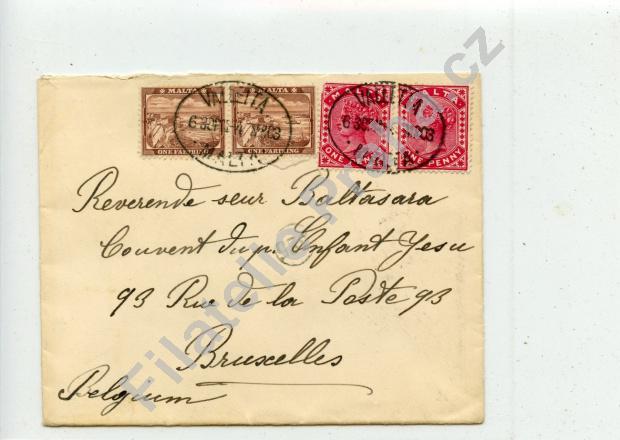 MALTA MALTA MALTA MALTA
VALLETTA VALLETTA
MALTA
ONE FARTHING ONE FARTHING ONE PENNY
Reverende seur Baltasara
Couvent du p. Enfant Jesu
93 Rue de la Poste 93
Bruxelles
Belgium
Filatelie Praha.cz